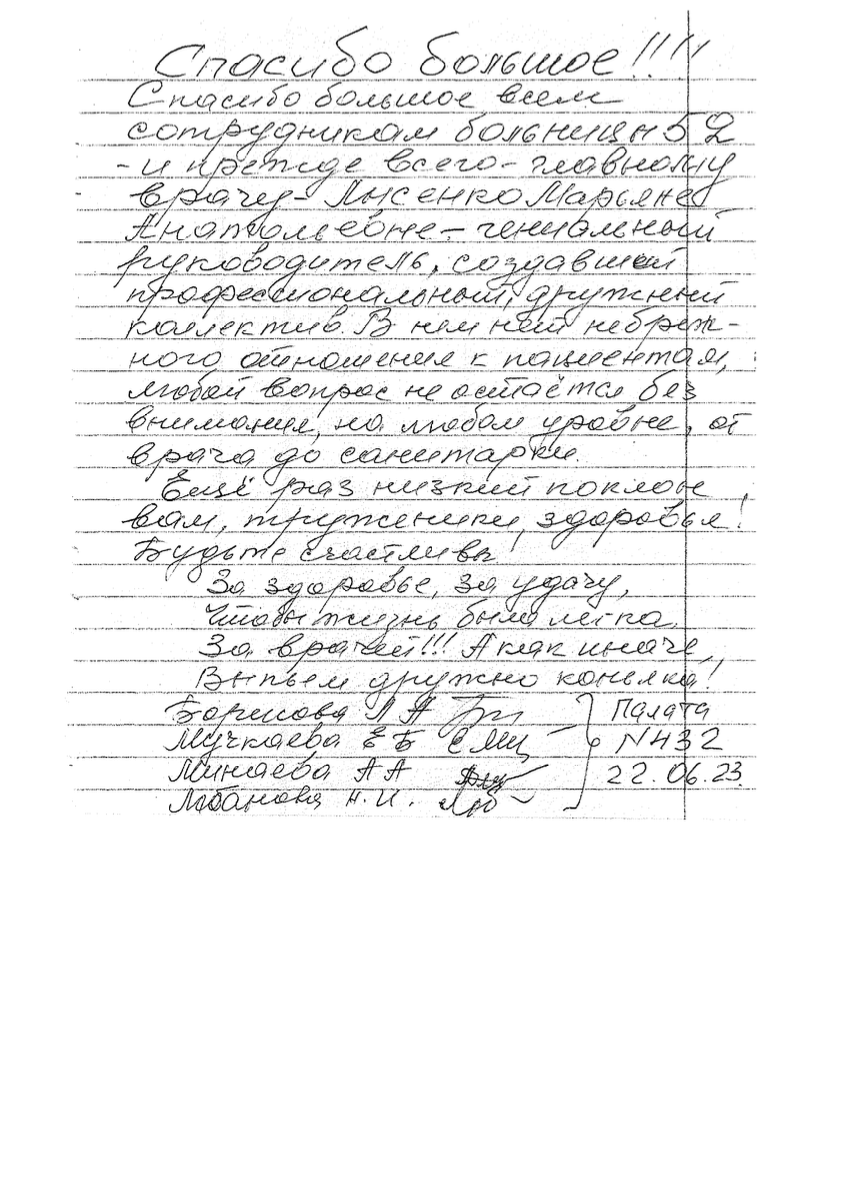 Спасибо большое!!!!
Спасибо большое всем
сотрудникам больницы N52
- и прежде всего - главному
врачу - Лысенко Марьяне
Анатольевне - гениальный
руководитель, создавший
профессиональный, дружный
коллектив. В нем нет небреж-
ного отношения к пациентам,
любой вопрос не остаётся без
внимания, на любом уровне, от
врача до санитарки.
Ещё раз низкий поклон
вам, труженики, здоровья!
Будьте счастливы!
За здоровье, за удачу,
Чтобы жизнь была легка,
За врачей!!! А как иначе,
Выпьем дружно коньяка!
Борисова Л А Палата
Мучкаева Е Б N432
Минаева А А 22.06.23.
Лобанова Н.И.